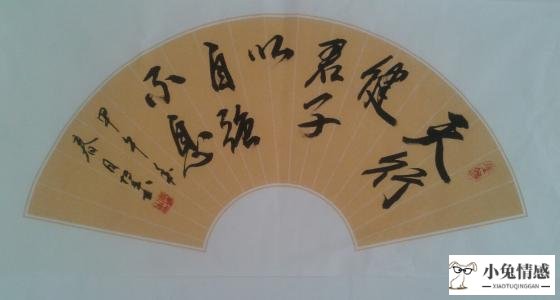 天行
健
君子
以
自强
不息
甲午年
春月
小兔情感
XIAOTUQINGGAN